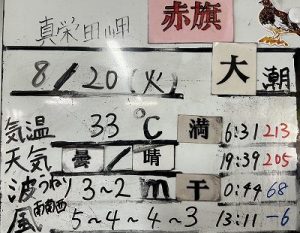 真栄田岬 赤旗
8/20(火) 大潮
気温 33℃ 満 6:31 213
天気 曇/晴 19:39 205
波 うねり 3~2m 干 0:44 68
風 南南西 5~4~4~3 13:11 -6